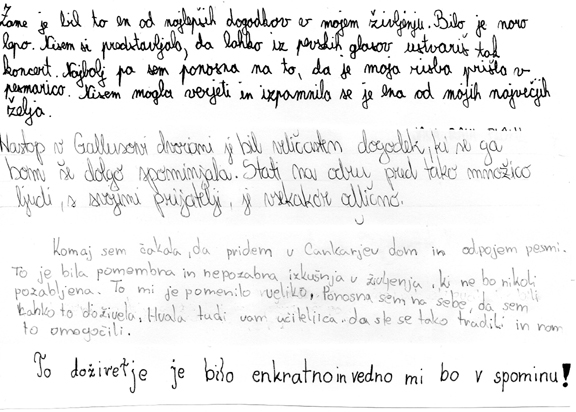 Zame je bil to en od najlepših dogodkov v mojem življenju. Bilo je novo
lepo. Nisem si predstavljala, da lahko iz pevskih glasov ustvariš tak
koncert. Najbolj pa sem ponosna na to, da je moja risba prišla v
pesmarico. Nisem mogla verjeti in izpolnila se je ena od mojih največjih
želja.
Nastop v Gallusovi dvorani je bil veličasten dogodek, ki se ga
bom še dolgo spominjala. Stati na odru pred tako množico
ljudi, s svojimi prijatelji, je vsekakor odlično.
Komaj sem čakala, da pridem v Cankarjev dom in odpojem pesmi.
To je bila pomembna in nepozabna izkušnja v življenja, ki ne bo nikoli
pozabljena. To mi je pomenilo veliko. Ponosna sem na sebe, da sem
lahko to doživela. Hvala tudi vam učiteljica da ste se tako trudili in nam
to omogočili.
To doživetje je bilo enkratno in vedno mi bo v spominu!